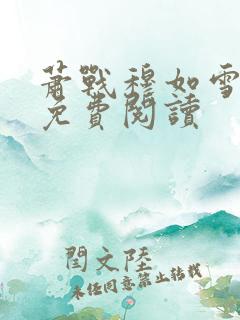 蕭戰穆如雪
免費閱讀
閆文陸
未经同意禁止转载